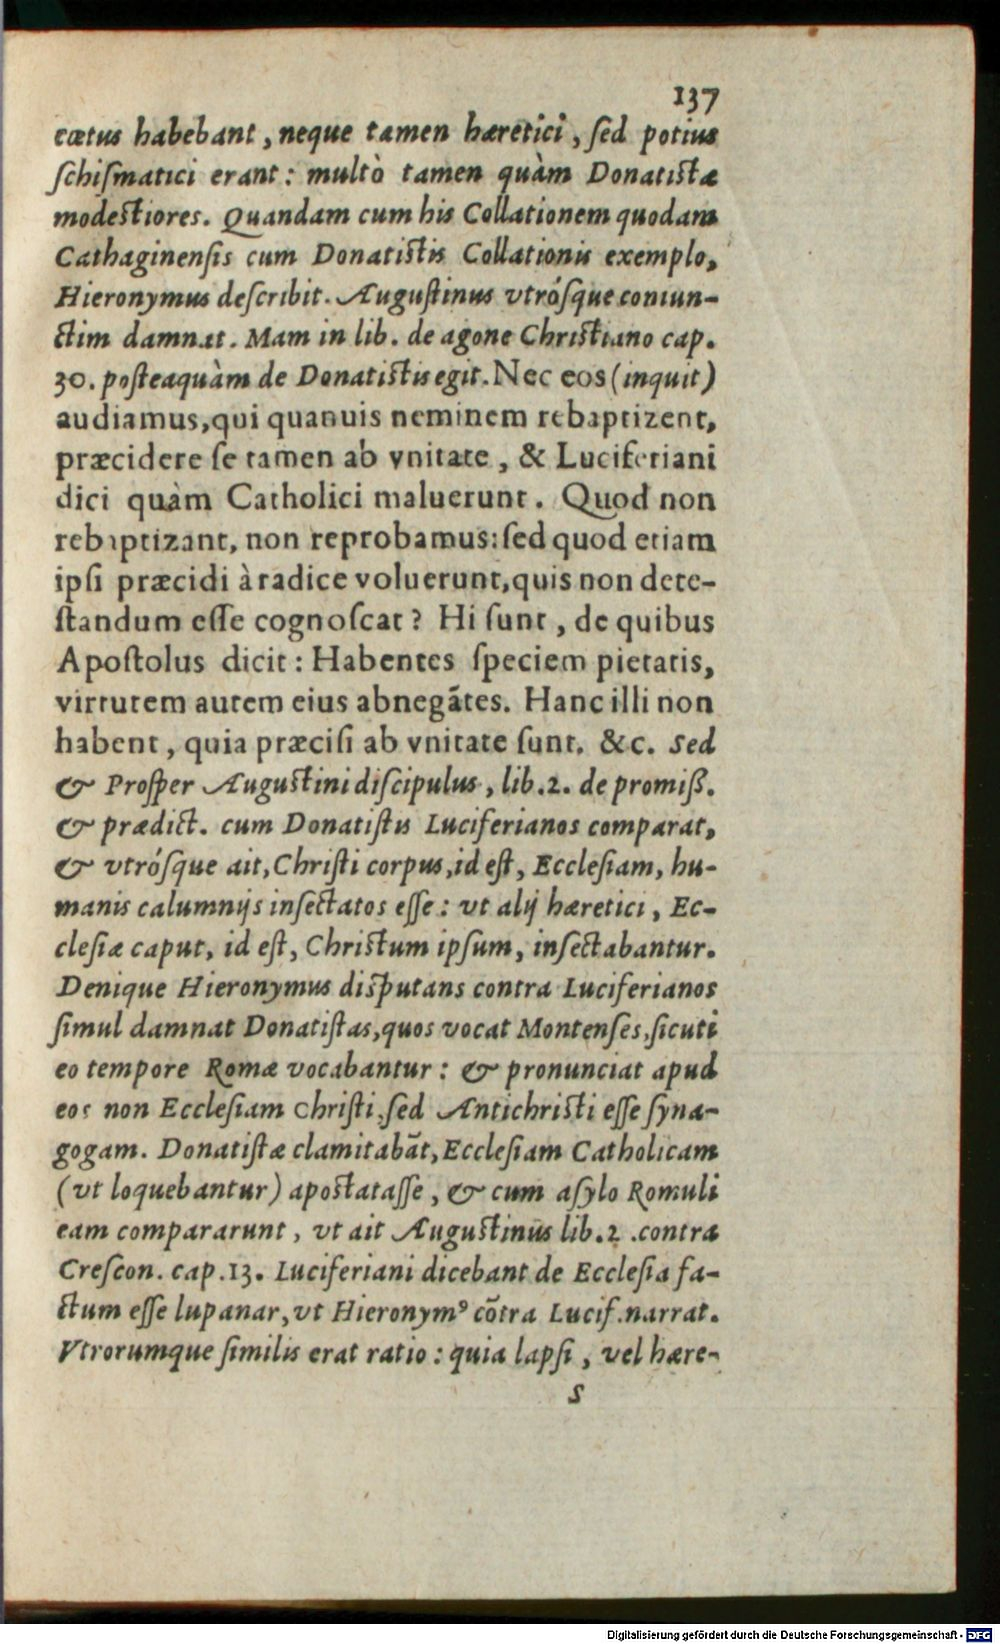 137
cœtus habebant, neque tamen hæretici, sed potius
schiſmatici erant: multò tamen quàm Donatiſtæ
modeſtiores. Quandam cum his Collationem quodam
Cathaginenſis cum Donatiſtis Collationis exemplo,
Hieronymus deſcribit. Auguſtinus vtróſque coniun-
ctim damnat. Mam in lib. de agone Chriſtiano cap.
30. poſteaquàm de Donatiſtis egit. Nec eos (inquit)
audiamus, qui quanuis neminem rebaptizent,
præcidere ſe tamen ab vnitate, & Luciferiani
dici quàm Catholici maluerunt. Quod non
rebaptizant, non reprobamus: ſed quod etiam
ipſi præcidi à radice voluerunt, quis non dete-
ſtandum eſſe cognoſcat? Hi ſunt, de quibus
Apoſtolus dicit: Habentes ſpeciem pietatis,
virtutem autem eius abnegãtes. Hanc illi non
habent, quia præciſi ab vnitate ſunt. &c. Sed
& Proſper Auguſtini diſcipulus, lib. 2. de promiß.
& prædict. cum Donatiſtis Luciferianos comparat,
& vtróſque ait, Chriſti corpus, id eſt, Eccleſiam, hu-
manis calumnijs inſectatos eſſe: vt alij hæretici, Ec-
cleſiæ caput, id eſt, Chriſtum ipſum, inſectabantur.
Denique Hieronymus diſputans contra Luciferianos
ſimul damnat Donatiſtas, quos vocat Montenſes, ſicuti
eo tempore Romæ vocabantur: & pronunciat apud
eos non Eccleſiam Chriſti, ſed Antichriſti eſſe ſyna-
gogam. Donatiſtæ clamitabãt, Eccleſiam Catholicam
(vt loquebantur) apoſtataſſe, & cum aſylo Romuli
eam compararunt, vt ait Auguſtinus lib. 2. contra
Creſcon. cap. 13. Luciferiani dicebant de Eccleſia fa-
ctum eſſe lupanar, vt Hieronymꝰ cõtra Lucif. narrat.
Vtrorumque ſimilis erat ratio: quia lapſi, vel hære-
S
Digitalisierung gefördert durch die Deutsche Forschungsgemeinschaft - DFG